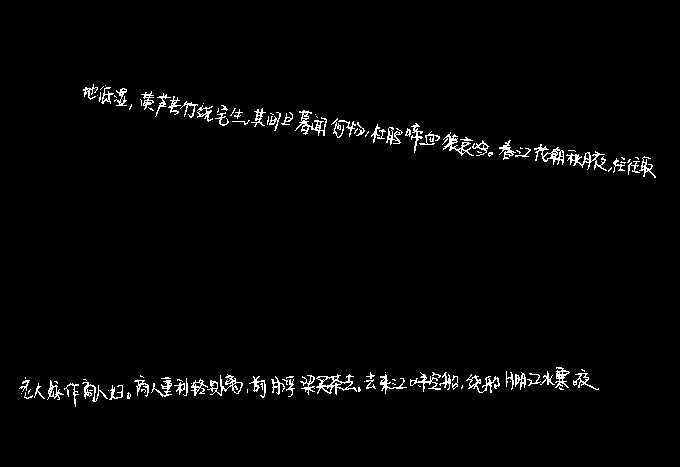 地低湿，黄芦苦竹绕宅生。其间旦暮闻何物，杜鹃啼血猿哀鸣。春江花朝秋月夜，往往取
老大嫁作商人妇。商人重利轻别离，前月浮梁买茶去。去来江口守空船，绕船月明江水寒夜